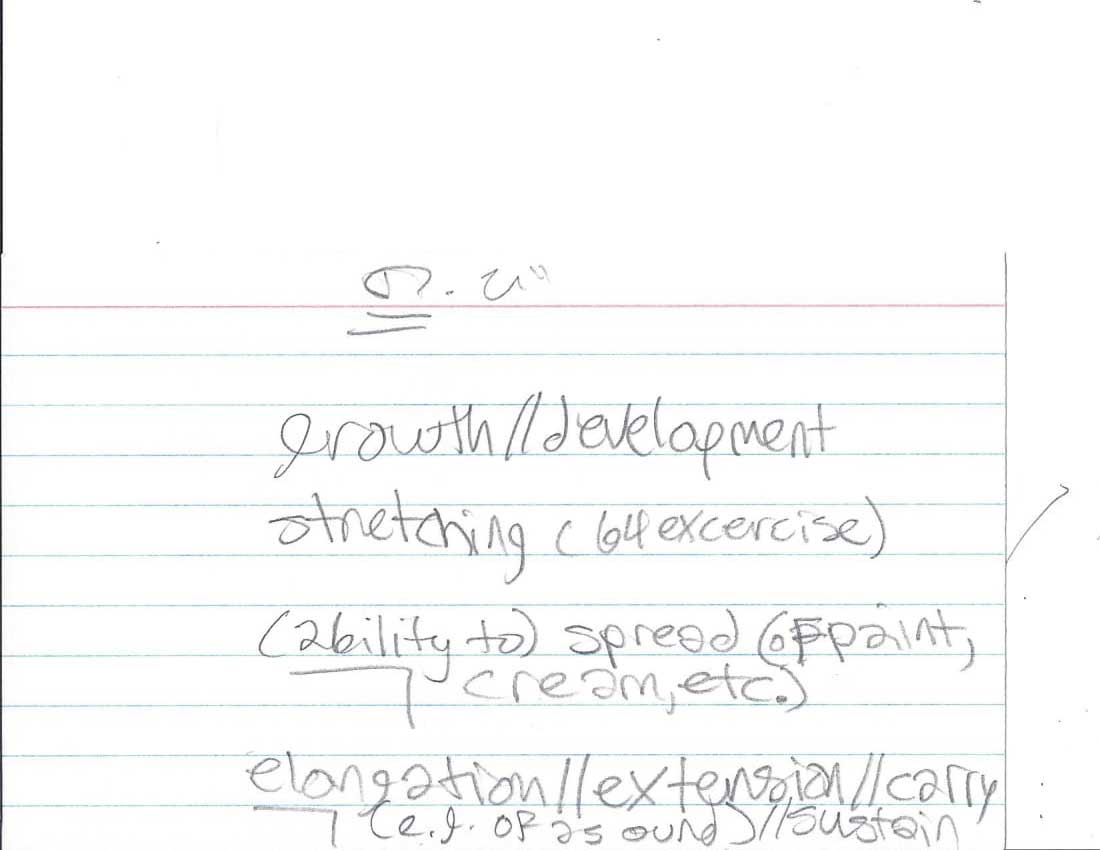 の.び
growth//development
stretching (b4 excercise)
(ability to) spread (of paint,
cream, etc.)
elongation//extension//carry
(e.g. of a sound)//sustain